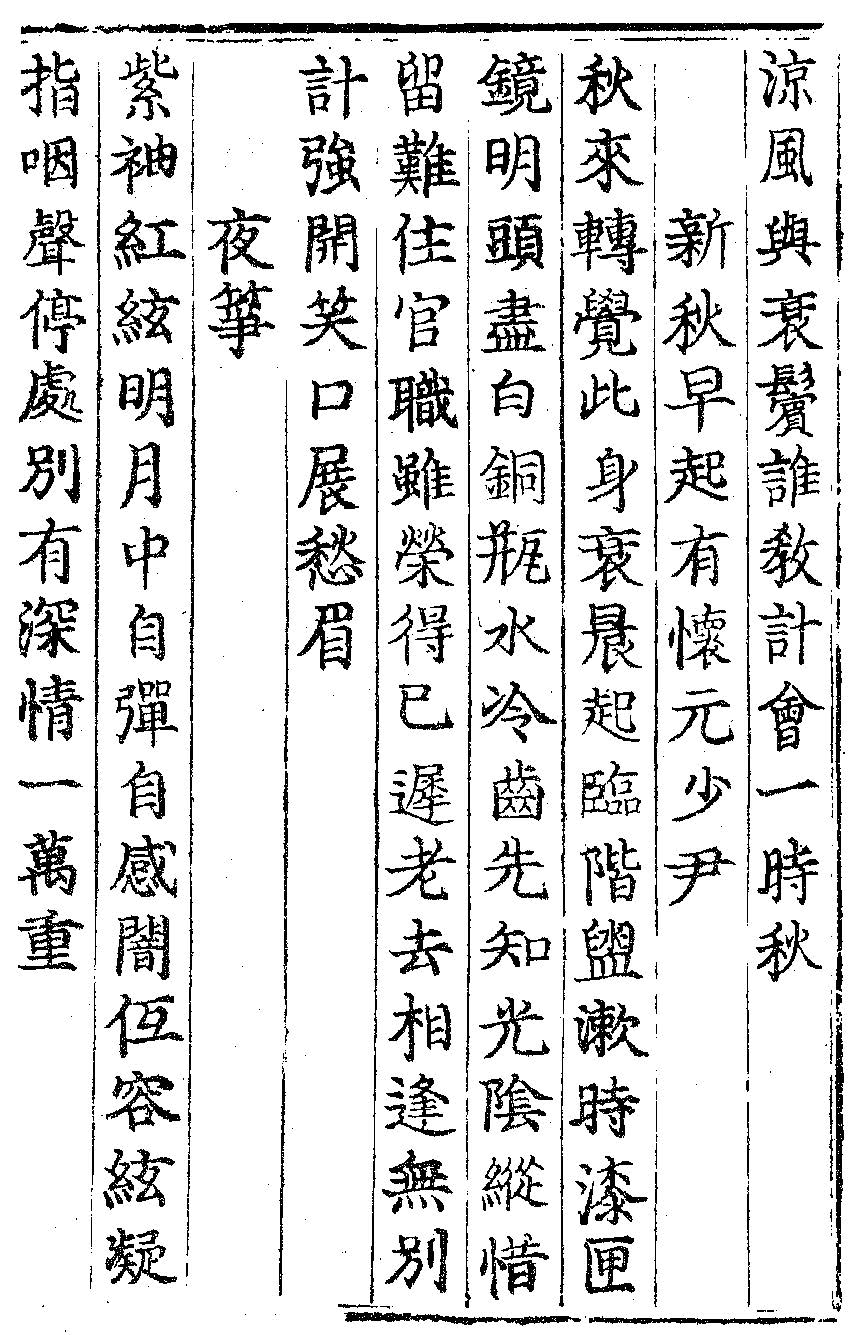 涼風與衰鬢誰教計會一時秋
新秋早起有懷元少尹
秋來轉覺此身衰晨起臨階盥漱時漆匣
鏡明頭盡白銅瓶水冷齒先知光陰縱惜
留難住官職雖榮得已遲老去相逢無別
計強開笑口展愁眉
夜箏
紫袖紅絃明月中自彈自感闇低容絃凝
指咽聲停處別有深情一萬重